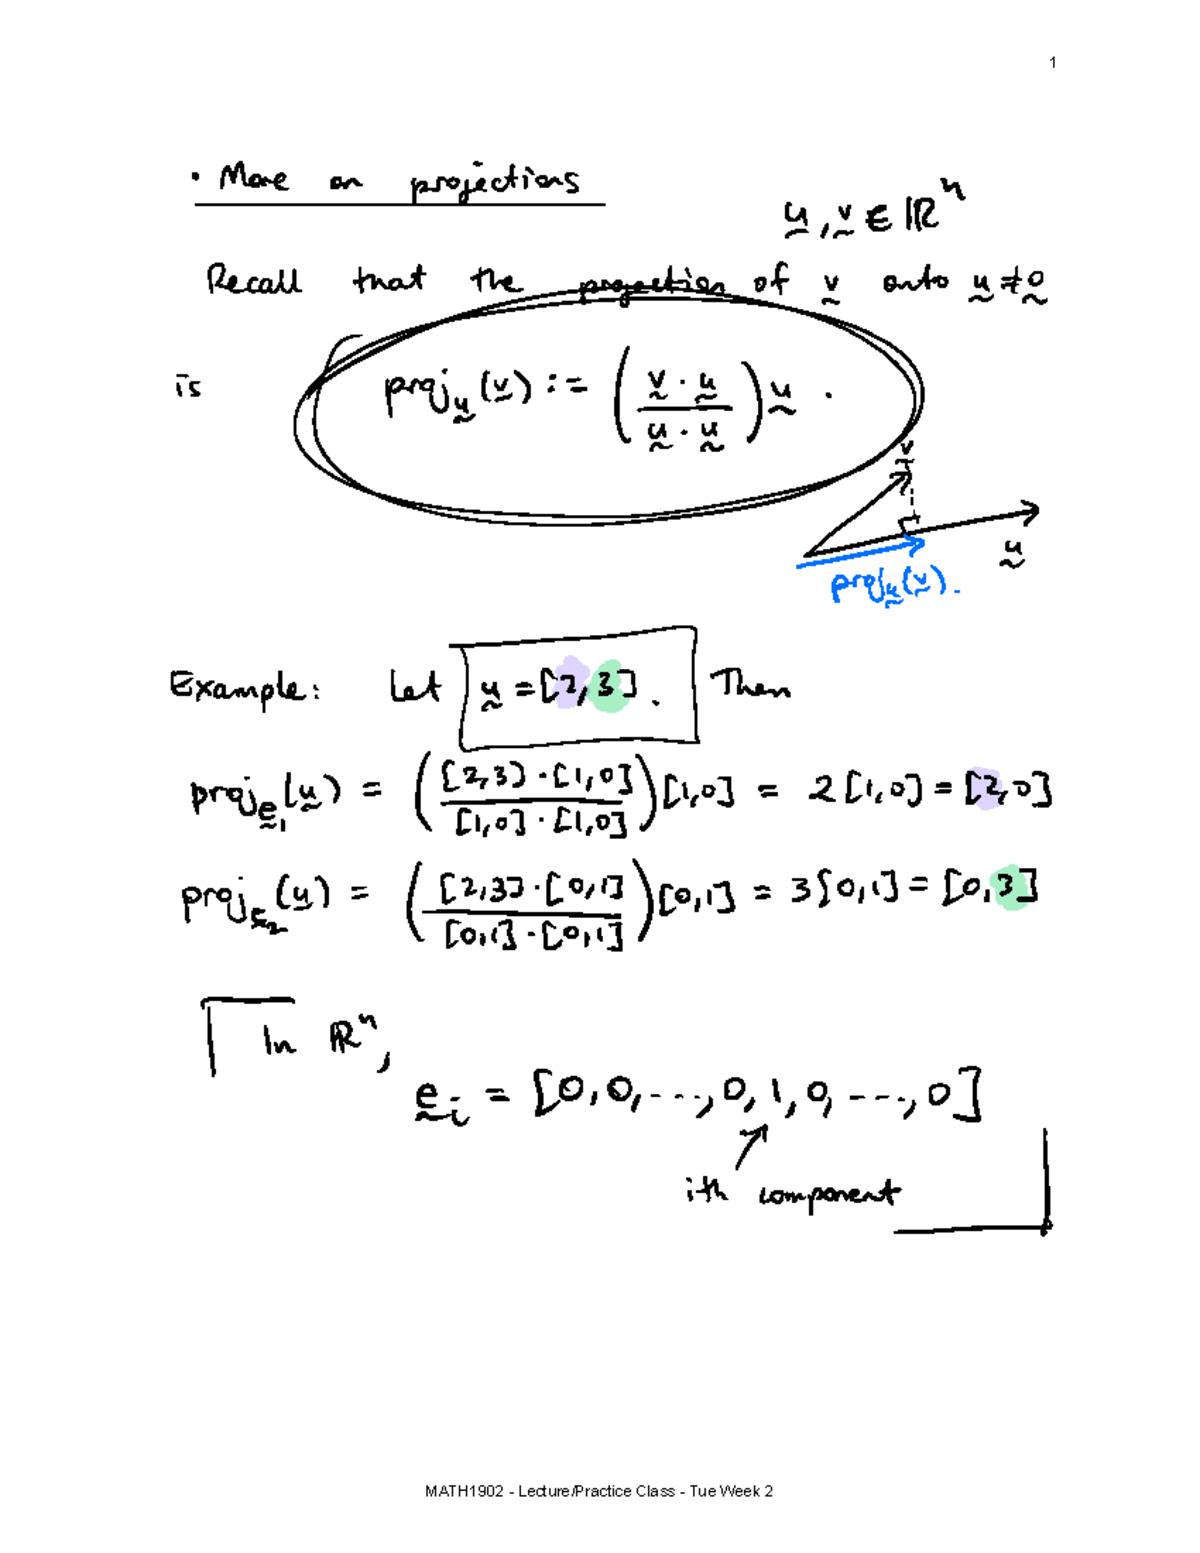 1
• More on projections
ṵ, v̰ ∈ ℝⁿ
Recall that the projection of v̰ onto ṵ ≠ 0̰
is proj_ṵ(v̰) := ((v̰ · ṵ)/(ṵ · ṵ)) ṵ .
v̰
ṵ
proj_ṵ(v̰).
Example: Let ṵ = [2, 3] . Then
proj_ḛ₁(ṵ) = (([2,3] · [1,0])/([1,0] · [1,0])) [1,0] = 2[1,0] = [2,0]
proj_ḛ₂(ṵ) = (([2,3] · [0,1])/([0,1] · [0,1])) [0,1] = 3[0,1] = [0,3]
In ℝⁿ,
ḛᵢ = [0,0,...,0,1,0,---,0]
ith component
MATH1902 - Lecture/Practice Class - Tue Week 2